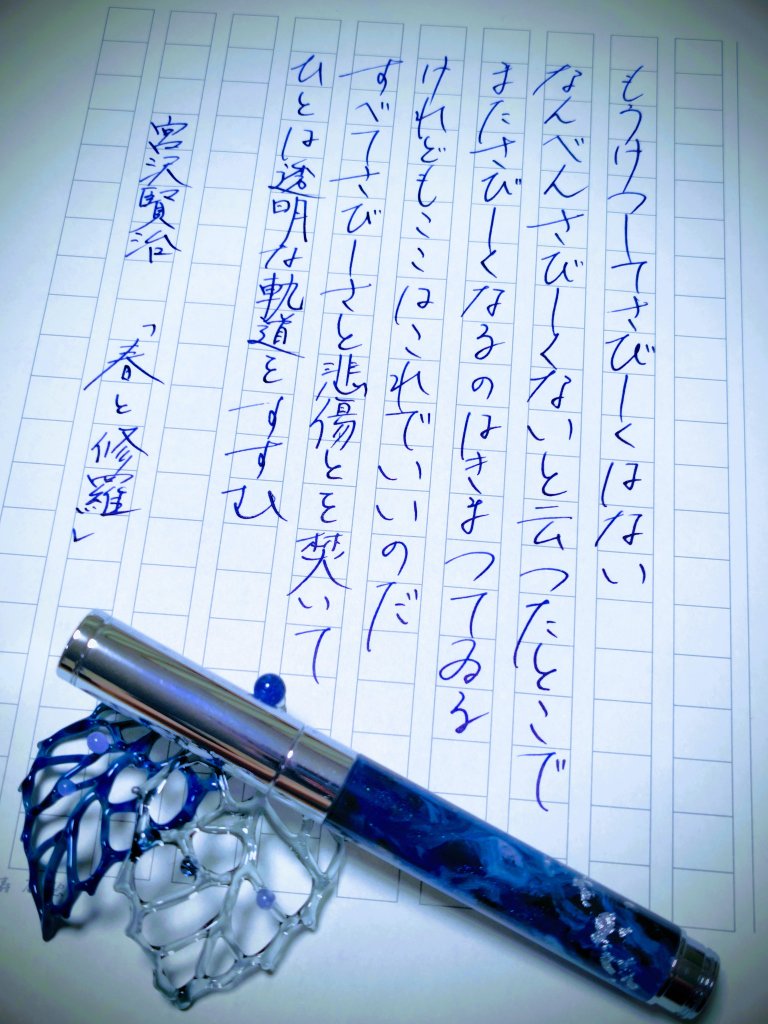 もうけつしてさびしくはない
なんべんさびしくないと云つたとこで
またさびしくなるのはきまつてゐる
けれどもここはこれでいいのだ
すべてさびしさと悲傷とを焚いて
ひとは透明な軌道をすすむ
宮沢賢治
「春と修羅」